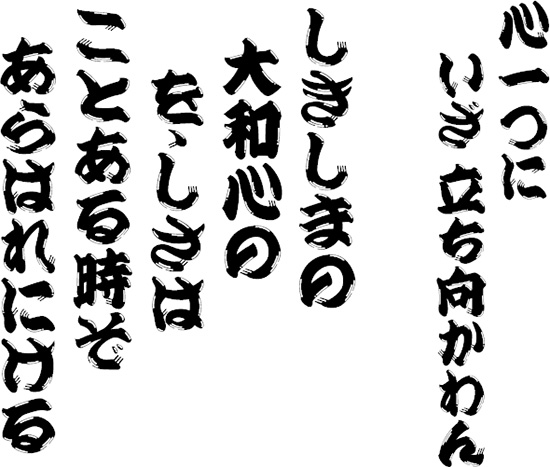 心一つに
いざ 立ち向かわん
しきしまの
大和心の
をゝしさは
ことある時ぞ
あらはれにける